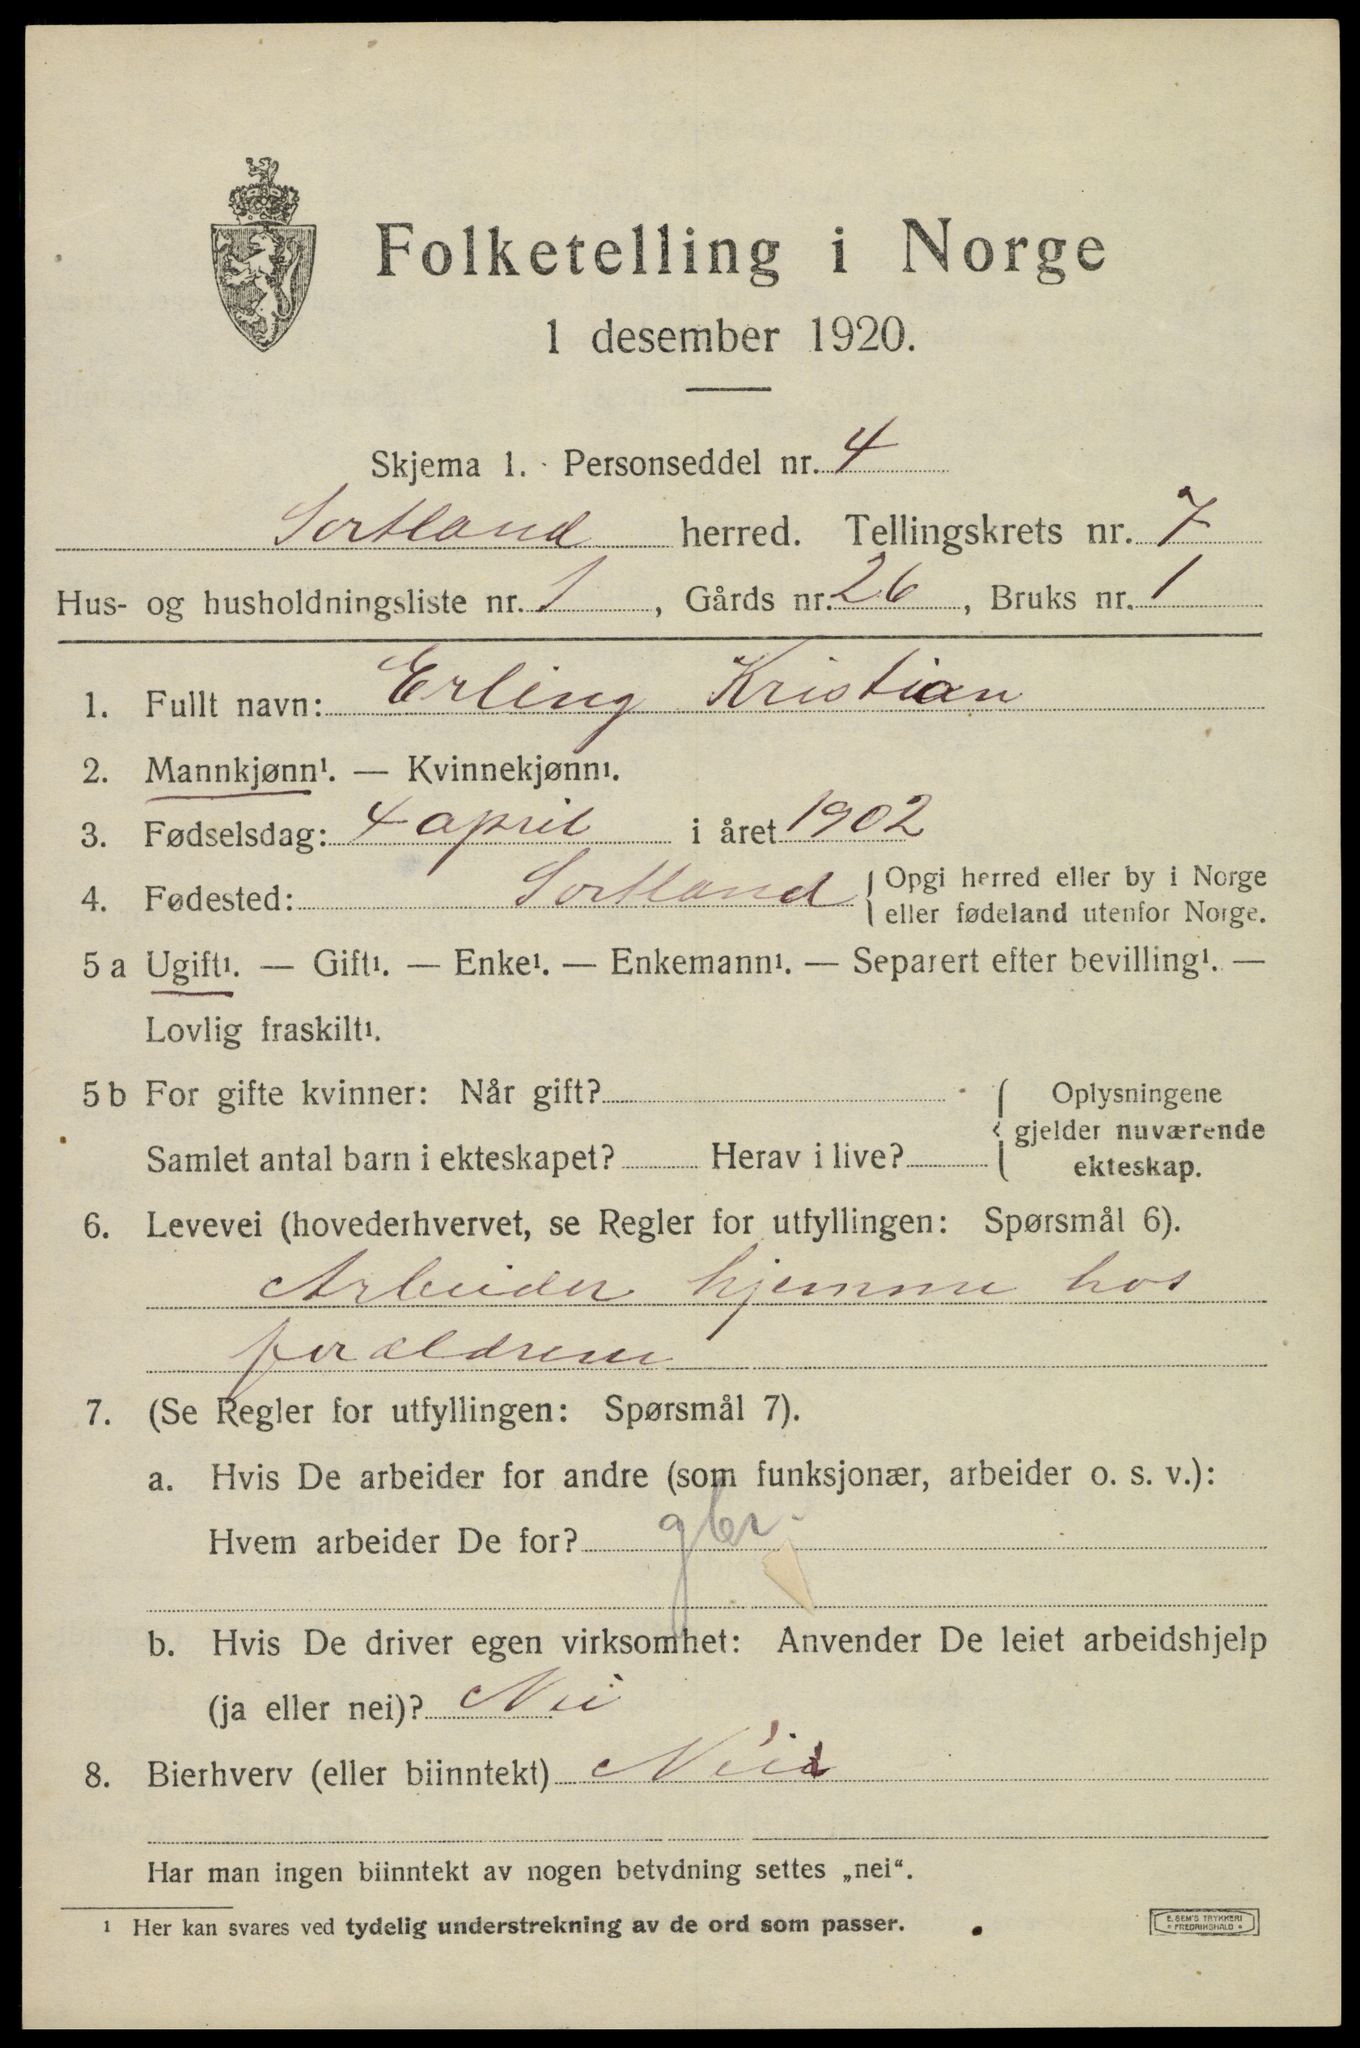 Folketelling i Norge
1 desember 1920.
Skjema 1. Personseddel nr. 4
Sortland herred. Tellingskrets nr. 7
Hus- og husholdningsliste nr. 1, Gårds nr. 26, Bruks nr. 1
1. Fullt navn: Erling Kristian
2. Mannkjønn¹. — Kvinnekjønn¹.
3. Fødselsdag: 4 april i året 1902
4. Fødested: Sortland { Opgi herred eller by i Norge
eller fødeland utenfor Norge.
5 a Ugift¹. — Gift¹. — Enke¹. — Enkemann¹. — Separert efter bevilling¹. —
Lovlig fraskilt¹.
5 b For gifte kvinner: Når gift? { Oplysningene
gjelder nuværende
Samlet antal barn i ekteskapet? Herav i live? ekteskap.
6. Levevei (hovederhvervet, se Regler for utfyllingen: Spørsmål 6).
Arbeider hjemme hos
forældrene
7. (Se Regler for utfyllingen: Spørsmål 7).
a. Hvis De arbeider for andre (som funksjonær, arbeider o. s. v.):
Hvem arbeider De for? gbr.
b. Hvis De driver egen virksomhet: Anvender De leiet arbeidshjelp
(ja eller nei)? Nei
8. Bierhverv (eller biinntekt) Nei
Har man ingen biinntekt av nogen betydning settes „nei“.
¹ Her kan svares ved tydelig understrekning av de ord som passer.
E. SEM'S TRYKKERI
FREDRIKSHALD